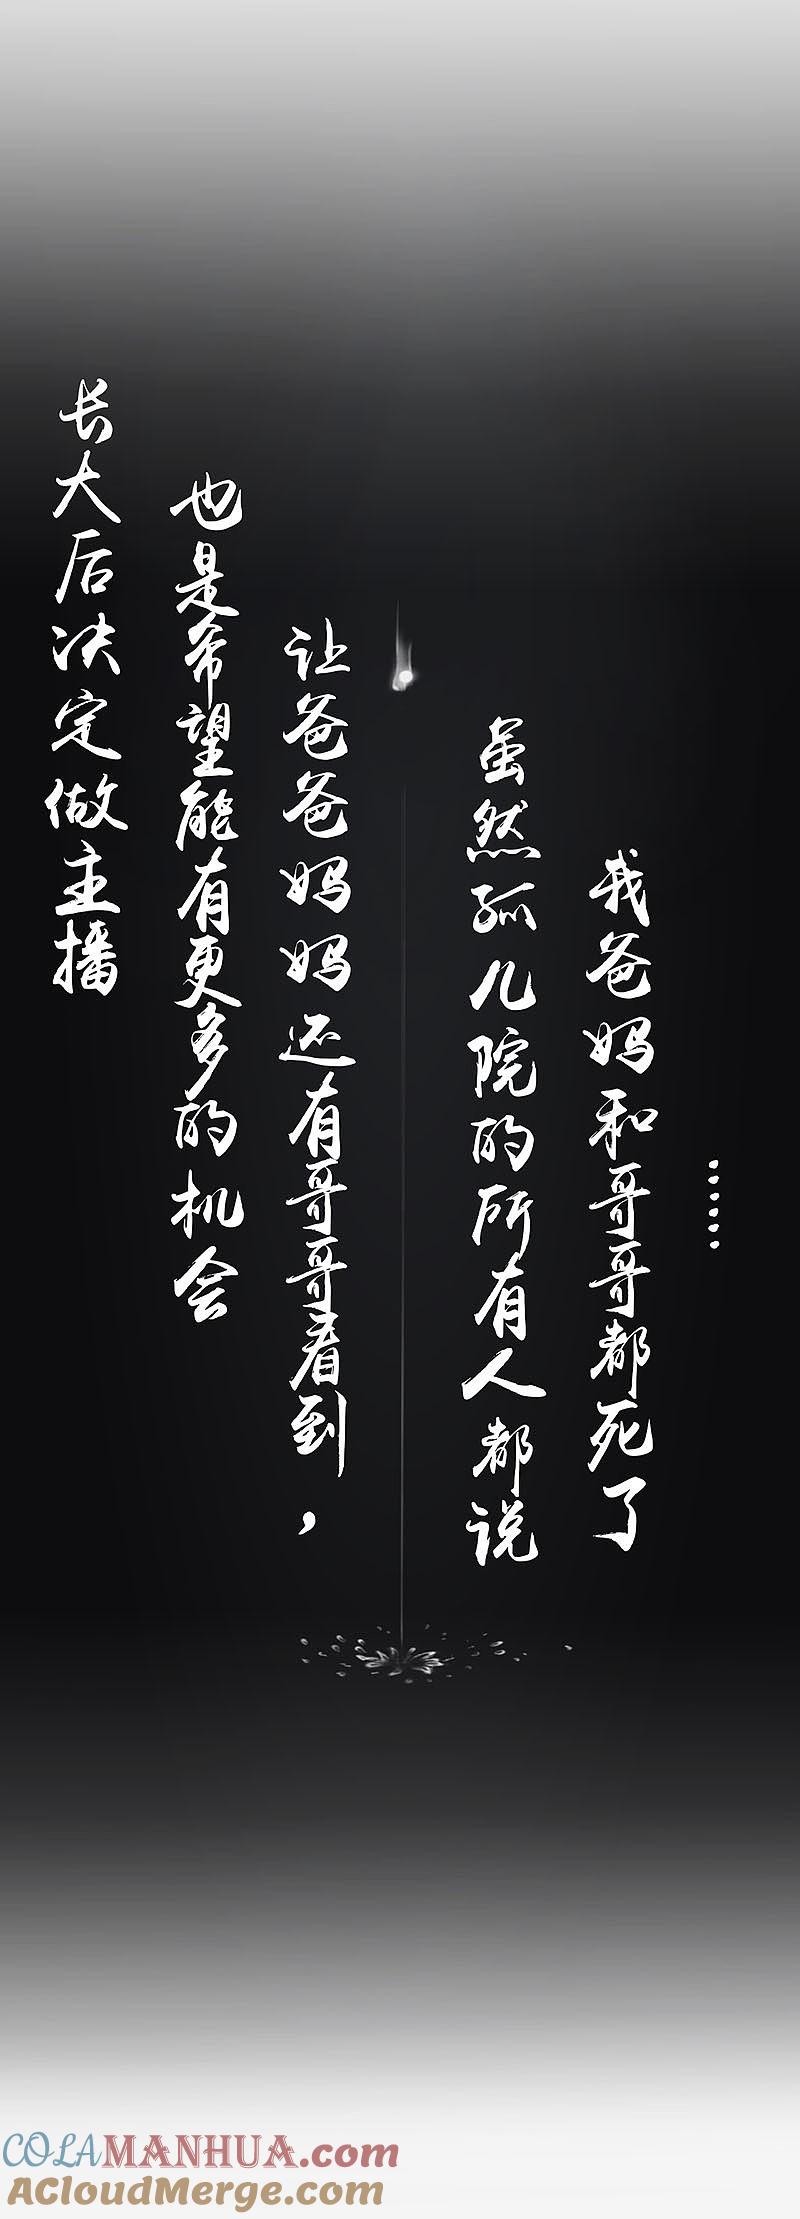 长大后决定做主播
也是希望能有更多的机会
让爸爸妈妈还有哥哥看到，
虽然孤儿院的所有人都说
我爸妈和哥哥都死了
……
COLAMANHUA.com
ACloudMerge.com